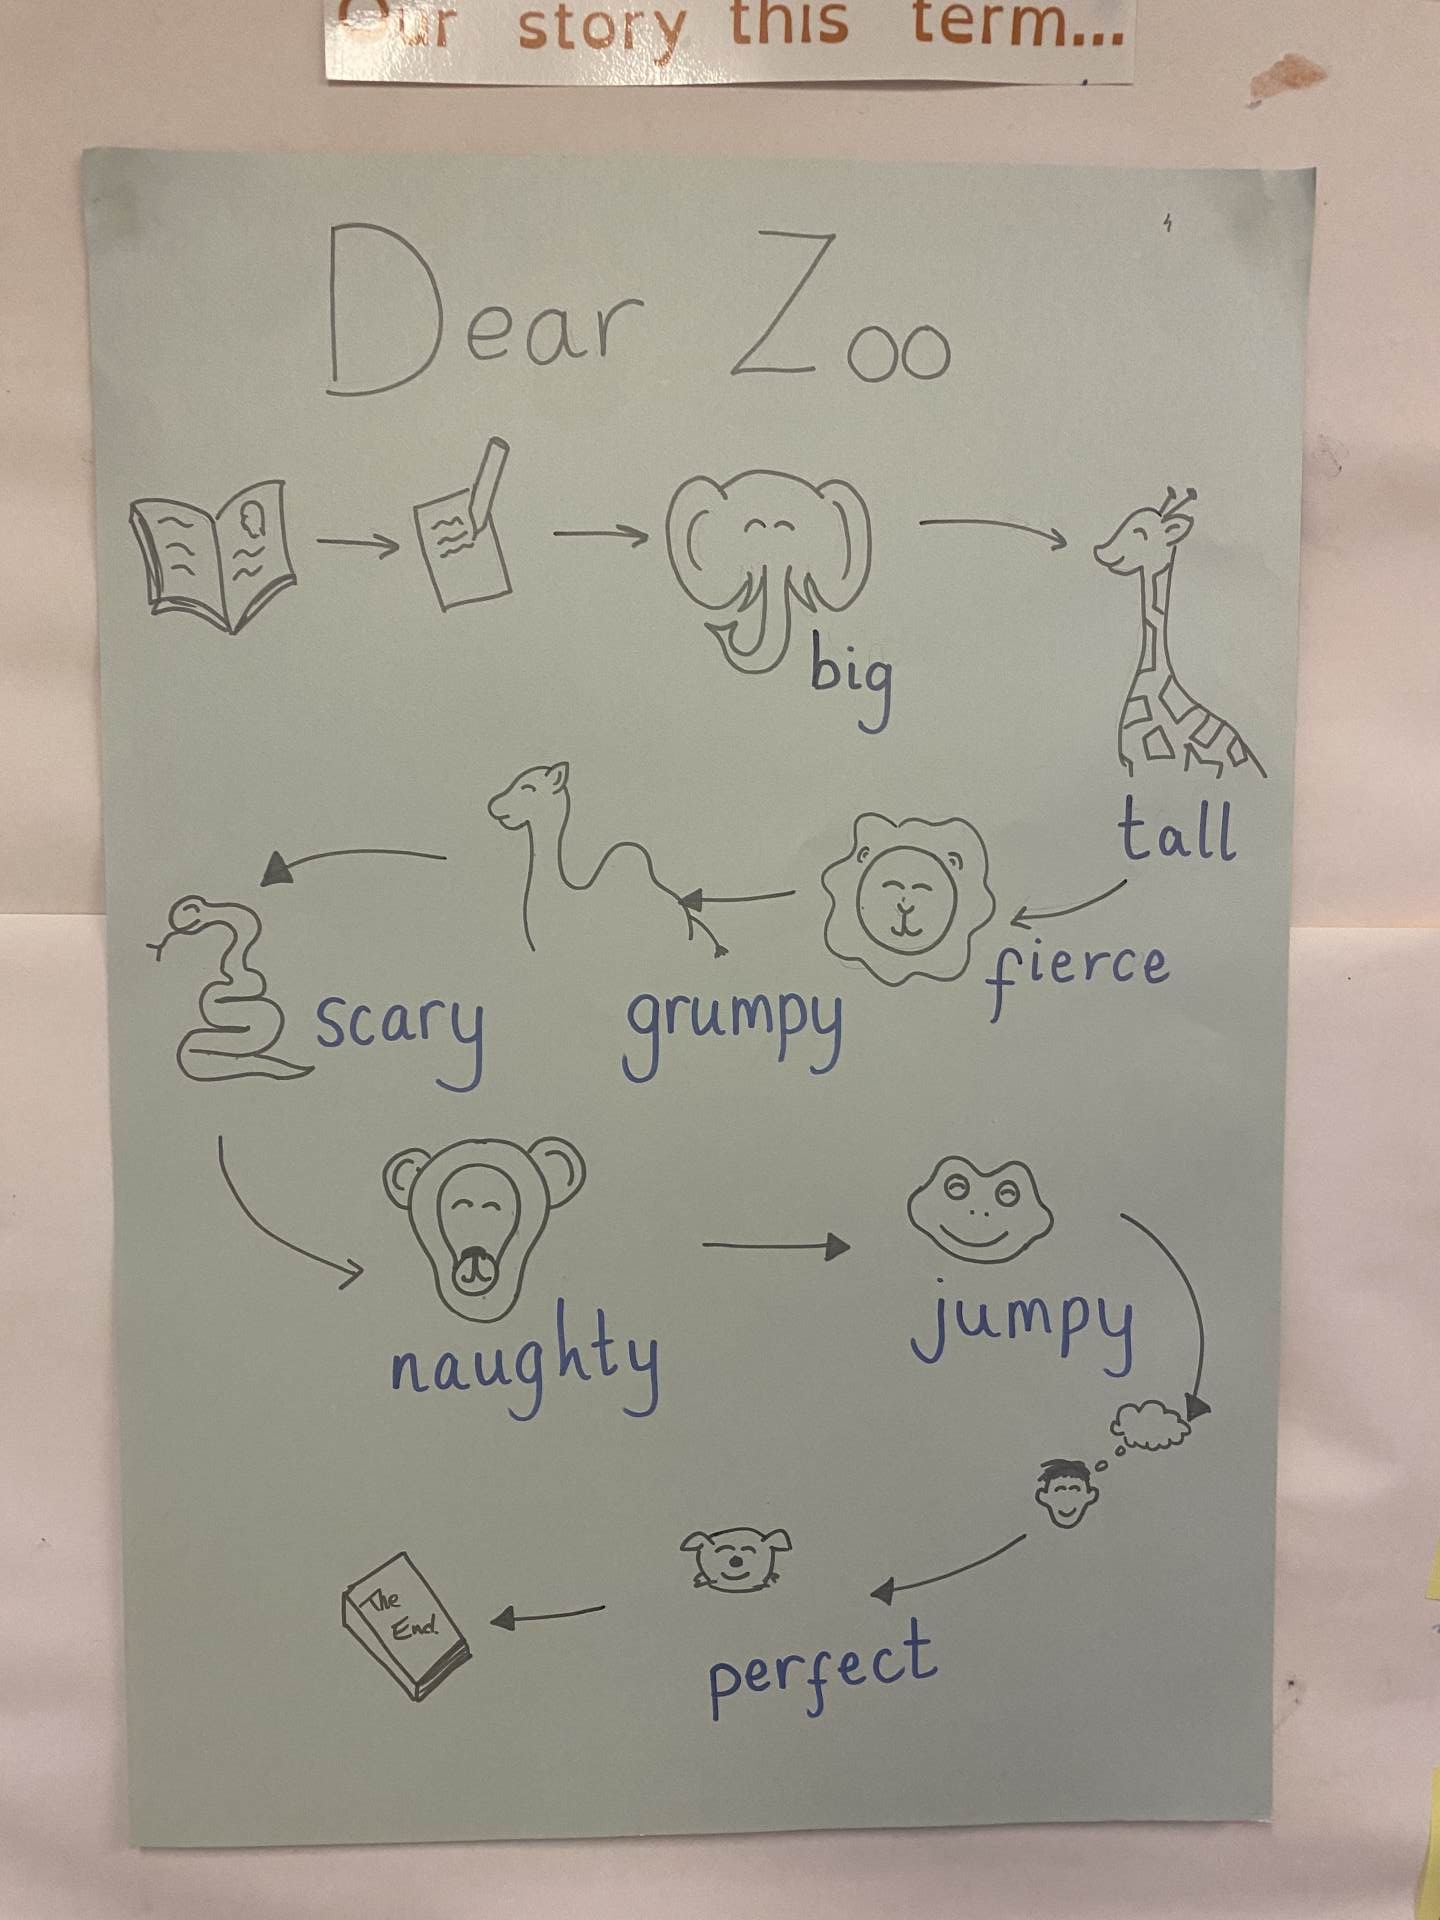 Our story this term...
Dear Zoo
big
tall
fierce
grumpy
scary
naughty
jumpy
perfect
The
End